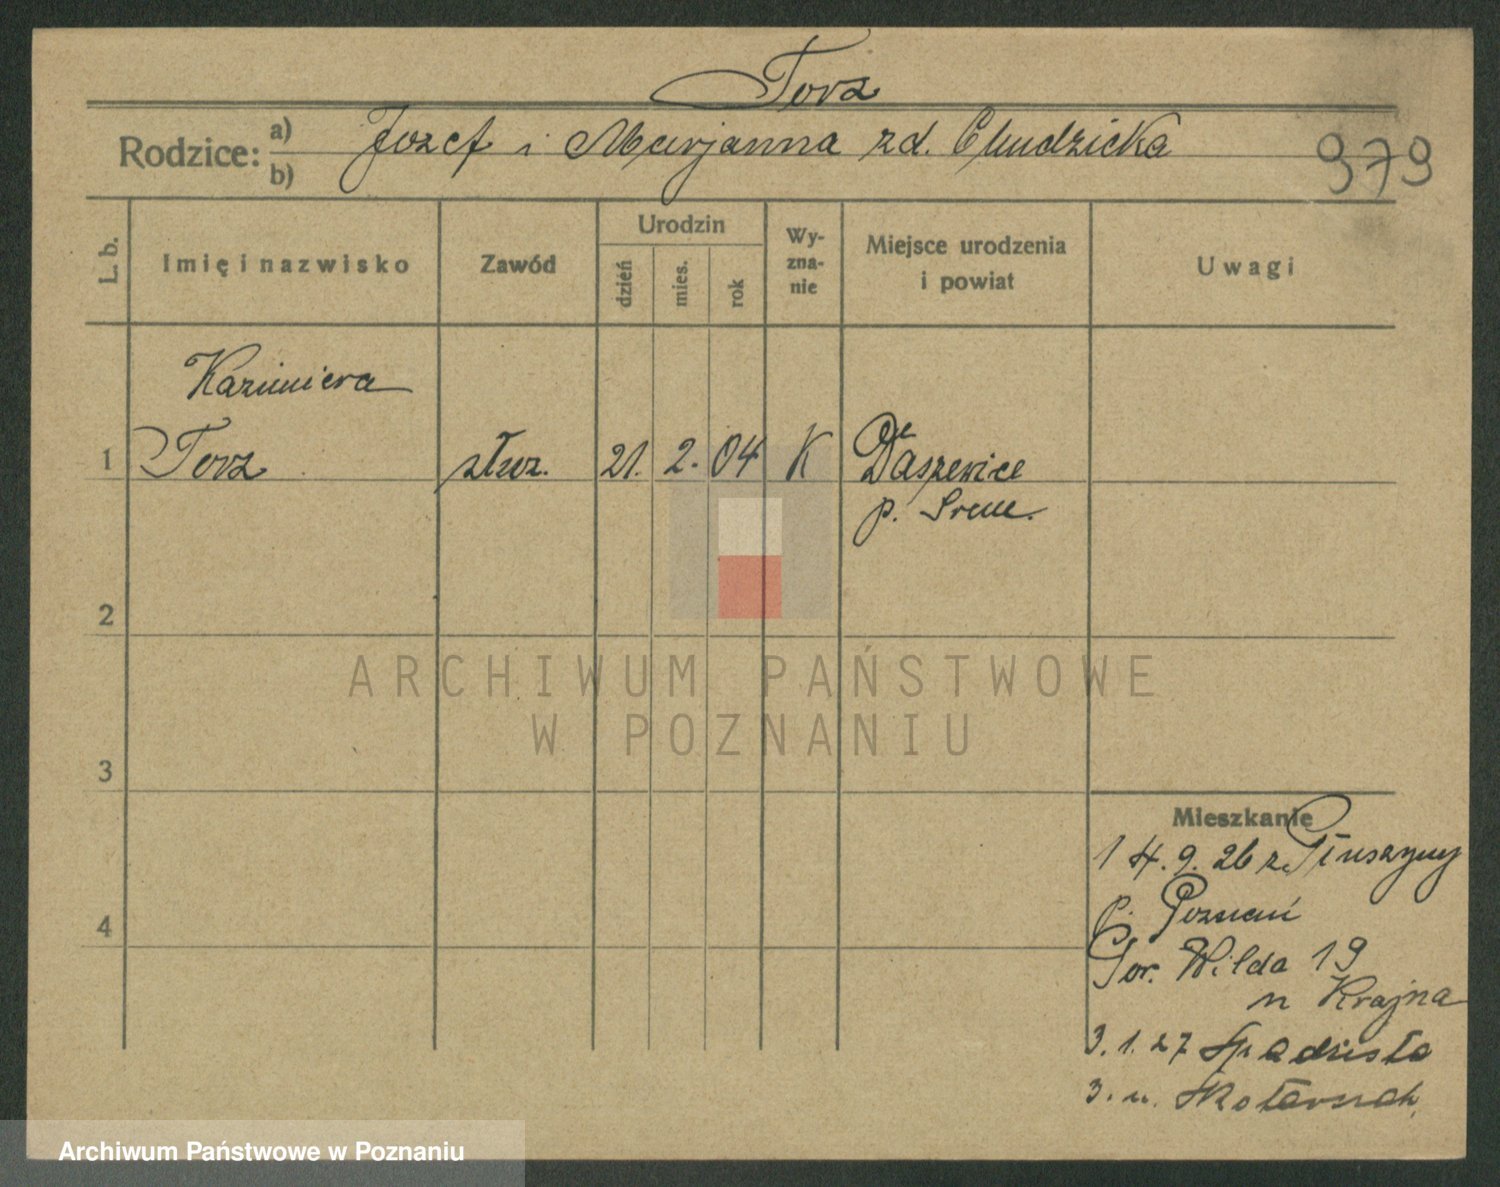 Torz
Rodzice: a) Jozef i Marjanna zd. Chudzicka
b)
979
L. b. Imię i nazwisko Zawód Urodzin dzień mies. rok Wy-zna-nie Miejsce urodzenia i powiat Uwagi
Kazimiera
1 Torz służ. 21. 2. 04 K Daszewice
p. Srem.
2
ARCHIWUM PAŃSTWOWE
W POZNANIU
3
Mieszkanie
14. 9. 26 z Głuszyny
p. Poznań
4
Gór. Wilda 19
u Krajna
3. 1. 27 Spadzista
3. u.
Archiwum Państwowe w Poznaniu